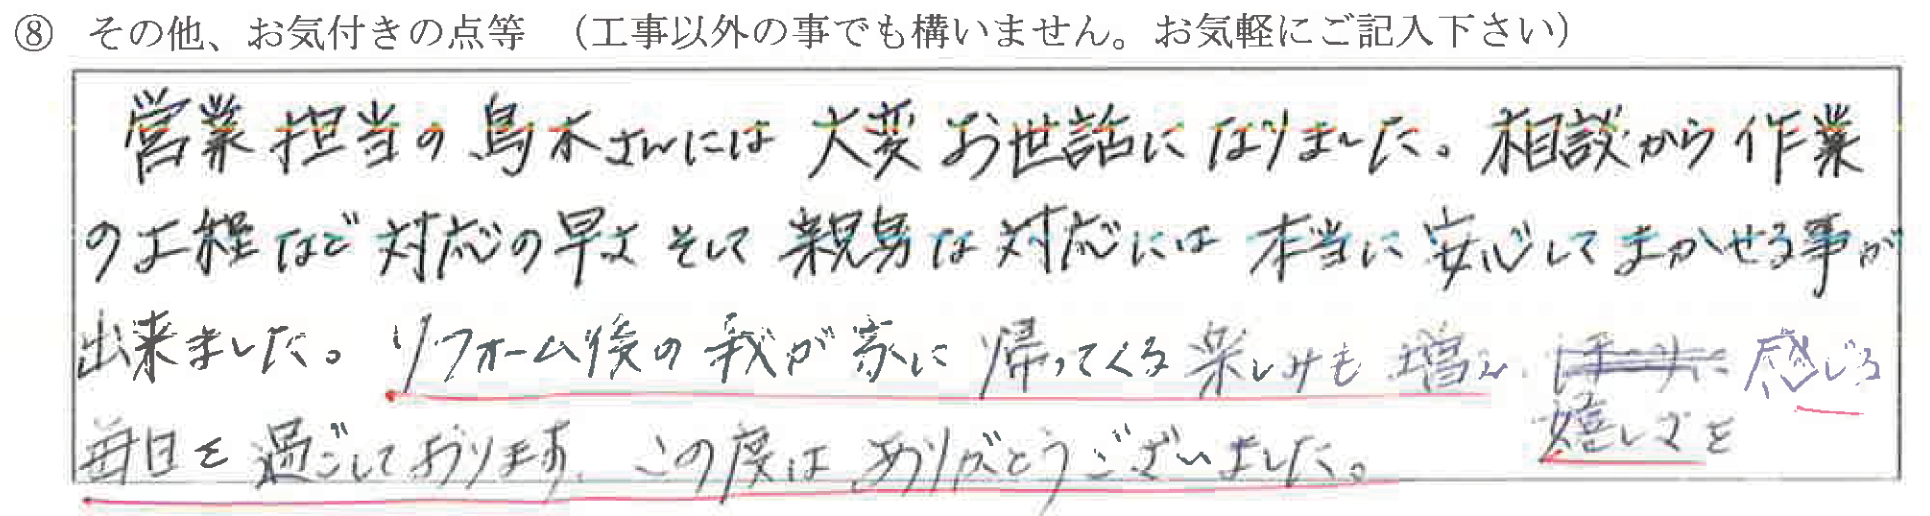 ⑧ その他、お気付きの点等 （工事以外の事でも構いません。お気軽にご記入下さい）
営業担当の鳥木さんには大変お世話になりました。相談から作業
の工程など対応の早さそして親身な対応には本当に安心してまかせる事が
出来ました。リフォーム後の我が家に帰ってくる楽しみも増え、感じる
嬉しさを
毎日を過ごしております。この度はありがとうございました。